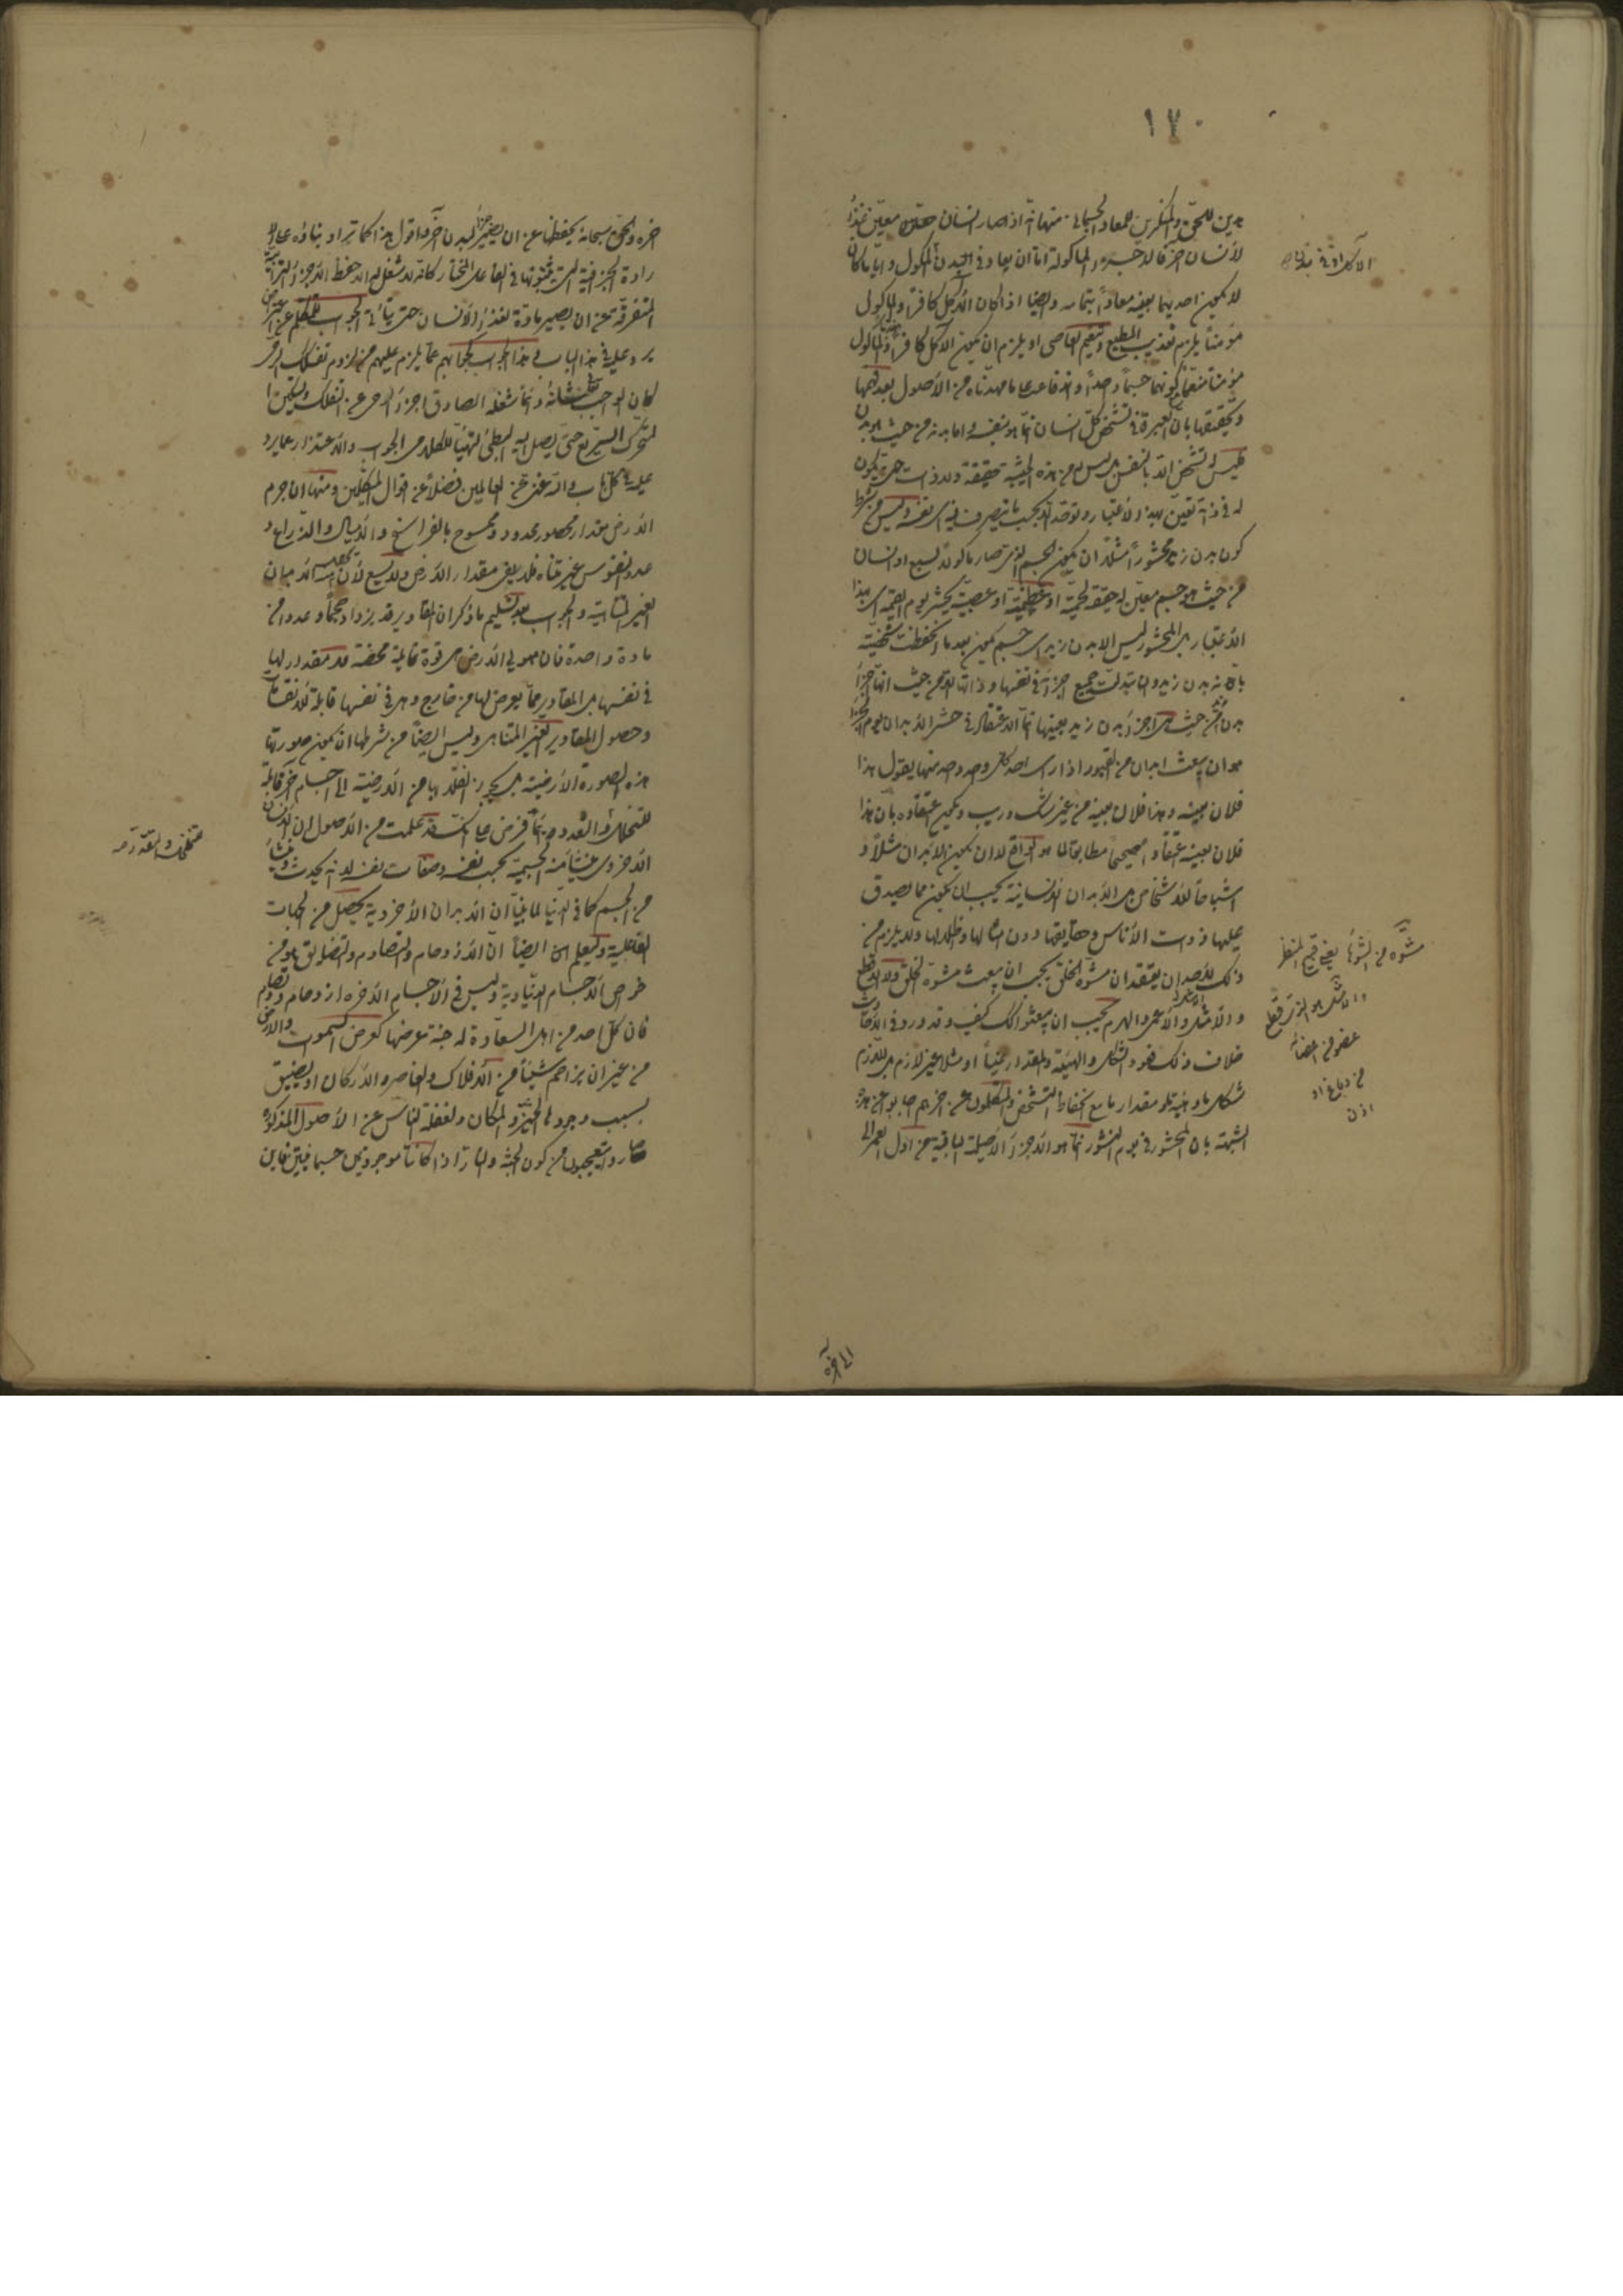 ١٧٠
بدين للحق والمنكرين للمعاد الجسماني منها انه اذا صار انسان معين غذاء
لانسان اخر فالاجزاء الماكولة اما ان يعاد في بدن الماكول و اياما كان
لا يكون احدهما بعينه معاداً بتمامه وايضا اذا كان الآكل كافراً والماكول
مؤمناً يلزم تعذيب المطيع وتنعيم العاصى او يلزم ان يكون الآكل كافراً والماكول
مؤمناً منعماً كونهما جسماً واحداً واندفاعه على ما مهدناه من الاصول بعد فهمها
وتحققها بان العبرة في تشخص كل انسان انما هو بنفسه واما بدنه من حيث هو بدن
فليس له تشخص الا بالنفس بل ليس له من هذه الحيثية حقيقة ولا ذات حتى يكون
له في ذاته تعين بهذا الاعتبار ولا توحد الا بحسب ما يتصرف فيه اى نفسه وليس من شرط
كون بدن زيد محشوراً مثلاً ان يكون الجسم الذى صار ماكولاً لسبع او انسان
من حيث هو جسم معين له حقيقة لحمية او عظمية او عصبية يحشر يوم القيمة اى بهذا
الاعتبار بل المحشور ليس الا بدن زيد اى جسم يكون بعد ما انحفظت شخصيته
بانه بدن زيد وان تبدلت جميع اجزائه في نفسها وذاتها لا من حيث انها اجزاء
بدن من حيث هى اجزاء بدن زيد بعينها ثم الاعتقاد في حشر الابدان يوم الجزاء
هو ان يبعث ابدان من القبور اذا راى احد كل واحد واحد منها يقول هذا
فلان بعينه وهذا فلان بعينه من غير شك وريب ويكون اعتقاده بان هذا
فلان بعينه اعتقاداً صحيحاً مطابقاً لما هو الواقع لا ان يكون الابدان مثلاً و
اشباحاً للاشخاص بل الابدان الانسانية يجب ان يكون مما يصدق
عليها ذوات الاناس وحقايقها دون امثالها وظلالها ولا يلزم من
ذلك لاحد ان يعتقد ان مشوه الخلق يجب ان يبعث مشوه الخلق والاقطع
والاشل والاعمى والهرم يجب ان يبعثوا كذلك كيف وقد ورد في الاحاديث
خلاف ذلك فهو والشكل والهيئة والمقدار غير لازم بل اللازم
شكل ما وهيئة ما ومقدار ما مع انحفاظ التشخص والمتكلمون عن اخرهم اجابوا عن هذه
الشبهة بان المحشور في يوم النشور انما هو الاجزاء الاصيلة الباقية من اول العمر الى
مشوه من الشوهاء يعنى قبيح المنظر
والاشل هو الذى قطع
عضو من اعضائه
من دماغ او
اذن
اخره والحق سبحانه يحفظها عن ان يصير اجزاء لبدن آخر واقول هذا كما تراه بناؤه على الا
رادة الجزافية التى يثبتونها في الفاعل المختار كانه لا شغل له الا حفظ الاجزاء الترابية
المتفرقة عن ان يصير مادة لغذاء الانسان حتى يتأتى الجواب للمتكلم عن اعتراض
يرد عليه في هذا الباب وهذا الجواب كجوابهم عما يلزم عليهم من لزوم تفكك الرحى
لكان الواجب شانه دائماً شغله الصاق اجزاء الرحى عن التفكك وتسكين ا
لمتحرك السريع حتى يصل اليه البطئ لتهيأ للكلام الجواب والاعتذار عما يرد
عليه في كل باب والله غنى عن العالمين فضلاً عن اقوال المتكلمين ومنها ان جرم
الارض مقدار محصور محدود وممسوح بالفراسخ والاميال والاذراع و
عدد النفوس غير متناه فلا يفى مقدار الارض ولا يسع لان يحصل منه الابدان
الغير المتناهية والجواب بعد تسليم ما ذكر ان المقادير قد يزداد حجماً وعدداً من
مادة واحدة فان هيولى الارض هى قوة قابلية محضة لا مقدار لها
في نفسها بل المقادير مما يعرض لها من خارج وهى في نفسها قابلة للانقسامات
وحصول المقادير الغير المتناهى وليس ايضاً من شرطها ان يكون صورتها
هذه الصورة الارضية بل يجوز انقلابها من الارضية الى اجسام آخر قابلة
للتخلخل والتعدد ثم فرض على انك قد علمت من الاصول ان الانسان
الاخروى ينشأ منه الجسمية بحسب نفسه وصفات نفسه لا انه يحدث وينشأ
من الجسم كما في الدنيا لما بينا ان الابدان الاخروية يحصل من الجهات
الفاعلية وليعلم ايضا ان الازدحام والتصادم والتضايق هو من
خواص الاجسام الدنياوية وليس في الاجسام الاخره ازدحام ولا تصادم
فان كل احد من اهل السعادة له جنة عرضها كعرض السموات والارض
من غير ان يزاحم شيئاً من الافلاك والعناصر والاركان او يضيق
بسبب وجودها الحيز والمكان ولغفلة الناس عن الاصول المذكورة
صاروا متعجبون من كون الجنة والنار اذا كانتا موجودتين جسمانيتين فاين